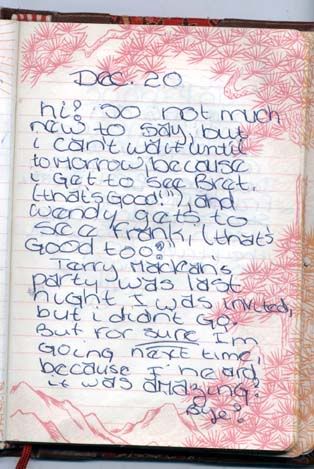 Dec. 20
hi! so not much
new to say, but
i can't wait until
tomorrow, because
i get to see Bret.
(that's good!!) and
wendy gets to
see Frank, (that's
good too!!)
Terry Maclean's
party was last
night I was invited,
but i didn't go.
But for sure I'm
going next time,
because i heard
it was amazing!
Bye!